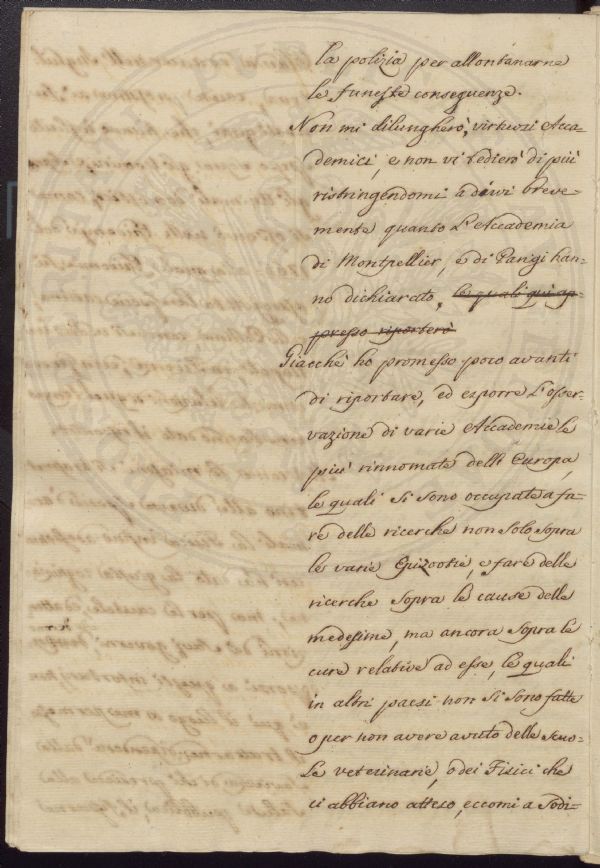 la polizia per allontanarne
le funeste conseguenze.
Non mi dilungherò, virtuosi Acca-
demici, e non vi tedierò di più
ristringendomi a dirvi breve-
mente quanto L'Accademia
di Montpellier, e di Parigi han-
no dichiarato, le quali quì ap-
presso riporterò
Giacchè ho promesso poco avanti
di riportare, ed esporre L'osser-
vazione di varie Accademie le
più rinnomate dell' Europa,
le quali si sono occupate a fa-
re delle ricerche non solo sopra
le varie Epizootie, e fare delle
ricerche sopra le cause delle
medesime, ma ancora sopra le
cure relative ad esse, le quali
in altri paesi non si sono fatte
o per non avere avuto delle scuo-
le veterinarie, o dei Fisici che
ci abbiano atteso, eccomi a sodi-